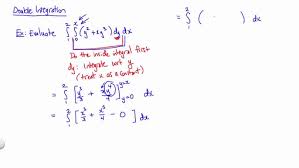 Double Integration
Ex: Evaluate ∫₁² ∫₀ˣ (y² + xy³) dy dx
Do the inside integral first
dy: Integrate wrt y
(treat x as a constant)
= ∫₁² [y³/3 + xy⁴/4]_{y=0}^{y=x} dx
= ∫₁² [x³/3 + x⁵/4 - 0] dx
= ∫₁² ( ) dx